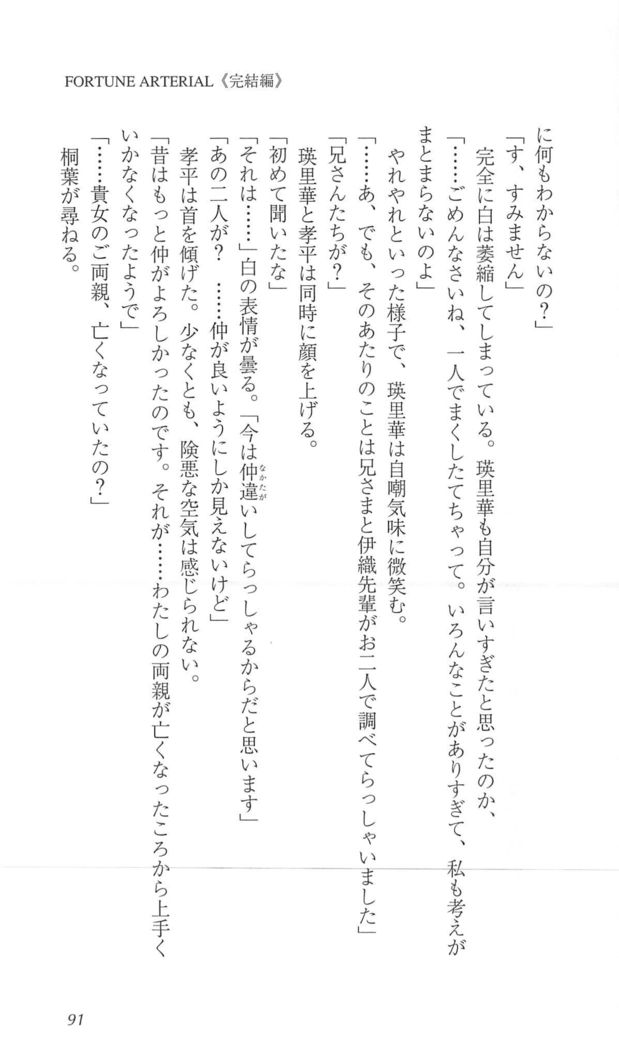 FORTUNE ARTERIAL《完結編》
に何もわからないの？」
「す、すみません」
完全に白は萎縮してしまっている。瑛里華も自分が言いすぎたと思ったのか、
「……ごめんなさいね、一人でまくしたてちゃって。いろんなことがありすぎて、私も考えが
まとまらないのよ」
やれやれといった様子で、瑛里華は自嘲気味に微笑む。
「……あ、でも、そのあたりのことは兄さまと伊織先輩がお二人で調べてらっしゃいました」
「兄さんたちが？」
瑛里華と孝平は同時に顔を上げる。
「初めて聞いたな」
「それは……」白の表情が曇る。「今は仲違いしてらっしゃるからだと思います」
なかたが
「あの二人が？　……仲が良いようにしか見えないけど」
孝平は首を傾げた。少なくとも、険悪な空気は感じられない。
「昔はもっと仲がよろしかったのです。それが……わたしの両親が亡くなったころから上手く
いかなくなったようで」
「……貴女のご両親、亡くなっていたの？」
桐葉が尋ねる。
91